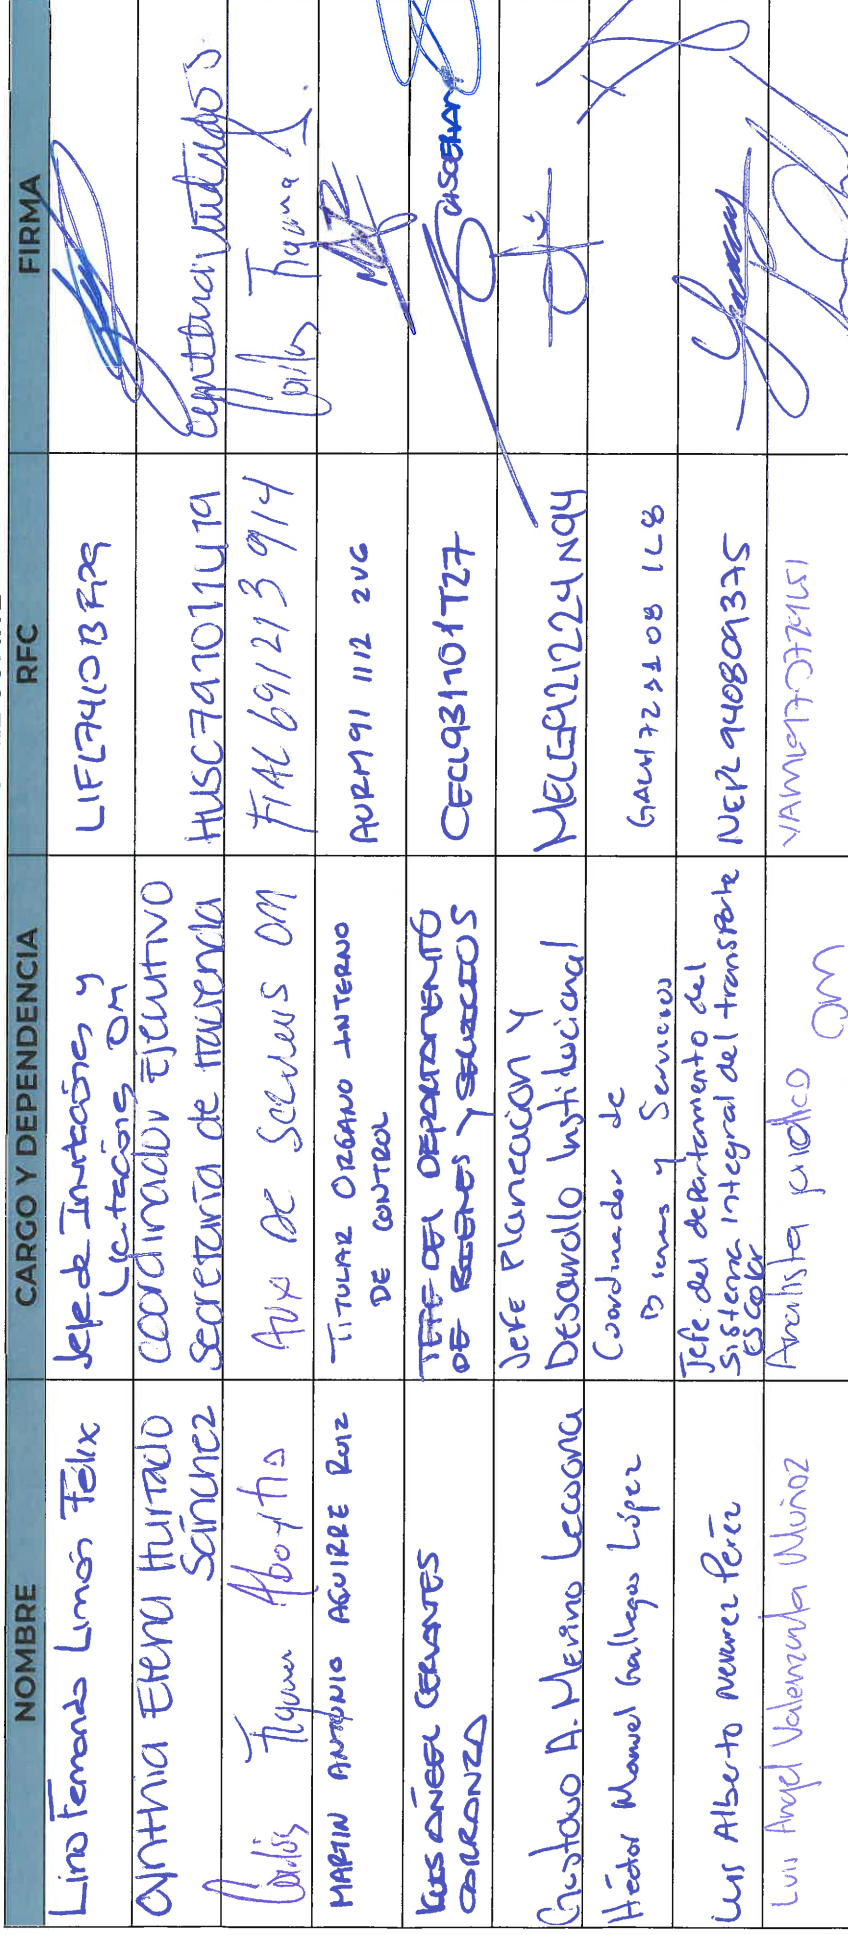 NOMBRE CARGO Y DEPENDENCIA RFC FIRMA
Lino Fernando Limón Félix
Jefe de Invitaciones y
Licitaciones OM
Cynthia Elena Hurtado
Sánchez
Coordinador Ejecutivo
Secretaría de Hacienda
HUSC791011U19
Cynthia Hurtado S
Carlos Figueroa
Aux de OM
FIAC691213914
Carlos Figueroa A.
MARTIN ANTONIO AGUIRRE RUIZ
TITULAR ORGANO INTERNO
DE CONTROL
AURM91 1112 2V6
LUIS ÁNGEL CERVANTES
CARRANZA
JEFE DEL DEPARTAMENTO
DE BIENES Y SERVICIOS
CECL931101T27
Gustavo A. Merino Lecuona
Jefe Planeacion y
Desarrollo Institucional
MELG921224N94
Héctor Manuel Gallegos López
Coordinador de
Bienes y Servicios
Luis Alberto Nevarez Pérez
Jefe del departamento del
Sistema Integral del transporte
Escolar
NEPL940809375
Luis Angel Valenzuela Muñoz
Analista jurídico OM